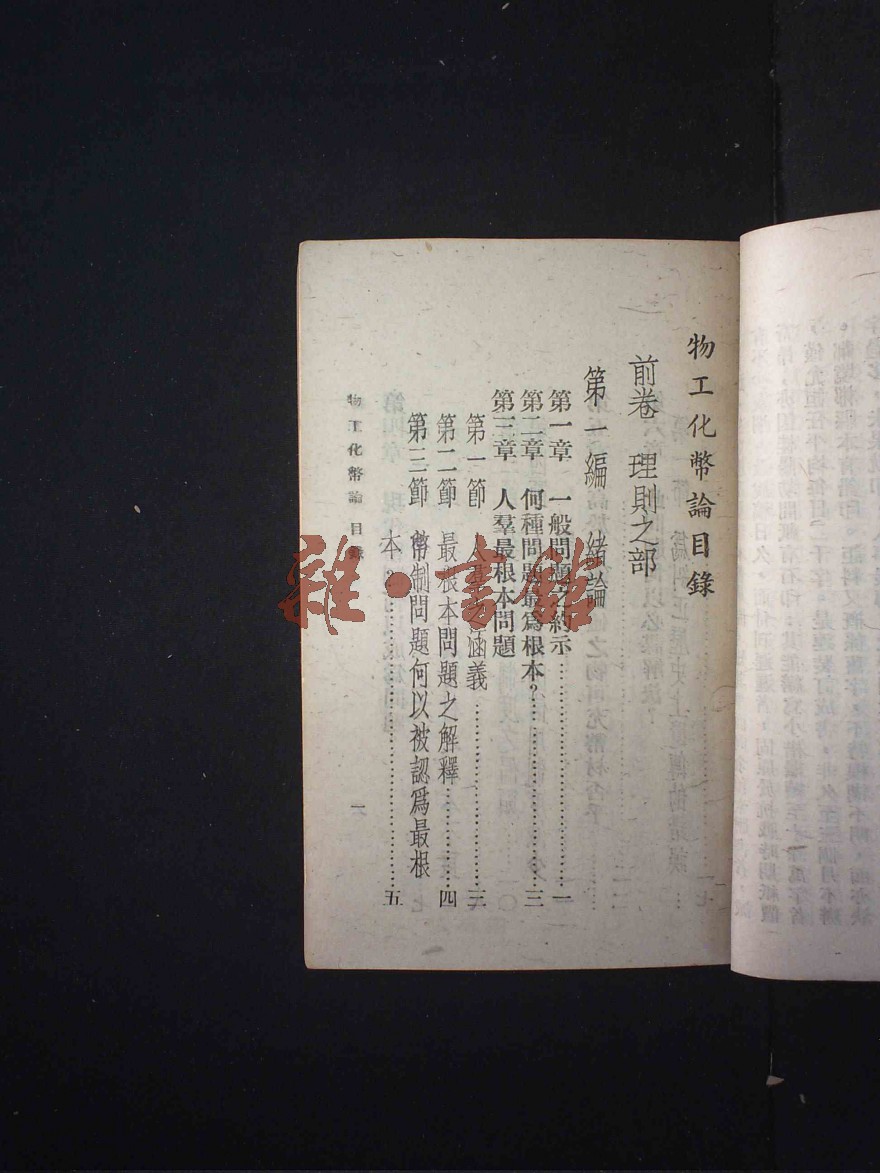 物工化幣論目錄
前卷 理則之部
第一編 緒論
第一章 一般問題之約示……一
第二章 何種問題最爲根本?……三
第三章 人羣最根本問題
第一節 人羣之涵義……三
第二節 最根本問題之解釋……四
第三節 幣制問題何以被認爲最根
本?……五
物工化幣論 目錄
一
雜·書館